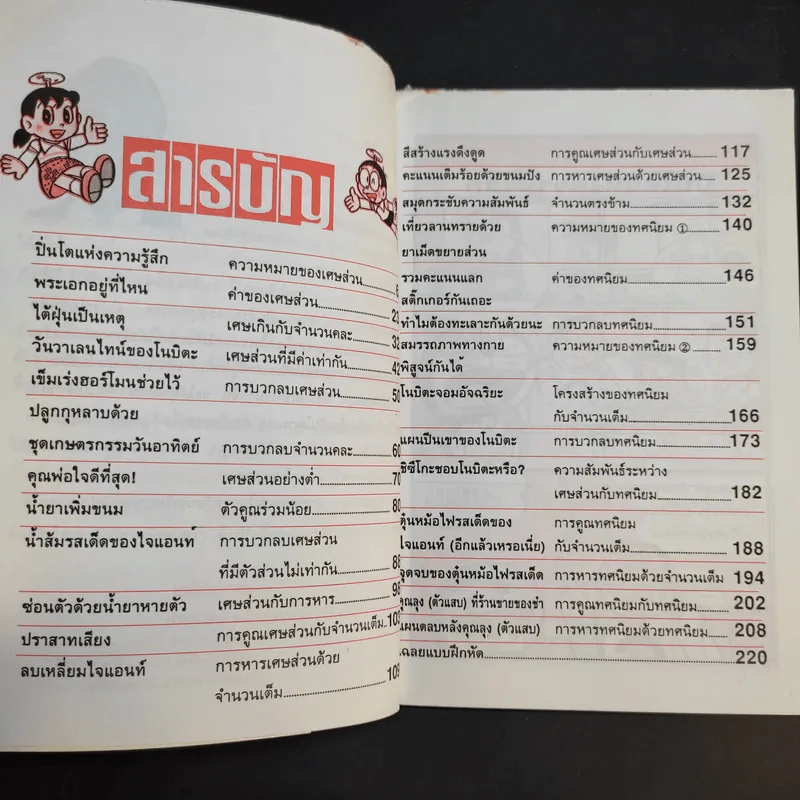 สารบัญ
ปิ่นโตแห่งความรู้สึก ความหมายของเศษส่วน
พระเอกอยู่ที่ไหน ค่าของเศษส่วน
ไต้ฝุ่นเป็นเหตุ เศษเกินกับจำนวนคละ
วันวาเลนไทน์ของโนบิตะ เศษส่วนที่มีค่าเท่ากัน
เข็มเร่งฮอร์โมนช่วยไว้ การบวกลบเศษส่วน
ปลูกกุหลาบด้วย
ชุดเกษตรกรรมวันอาทิตย์ การบวกลบจำนวนคละ
คุณพ่อใจดีที่สุด! เศษส่วนอย่างต่ำ
น้ำยาเพิ่มขนม ตัวคูณร่วมน้อย
น้ำส้มรสเด็ดของไจแอนท์ การบวกลบเศษส่วน
ที่มีตัวส่วนไม่เท่ากัน
ซ่อนตัวด้วยน้ำยาหายตัว เศษส่วนกับการหาร
ปราสาทเสียง การคูณเศษส่วนกับจำนวนเต็ม
ลบเหลี่ยมไจแอนท์ การหารเศษส่วนด้วย
จำนวนเต็ม 109
สีสร้างแรงดึงดูด การคูณเศษส่วนกับเศษส่วน 117
คะแนนเต็มร้อยด้วยขนมปัง การหารเศษส่วนด้วยเศษส่วน 125
สมุดกระชับความสัมพันธ์ จำนวนตรงข้าม 132
เที่ยวลานทรายด้วย ความหมายของทศนิยม ① 140
ยาเม็ดขยายส่วน
รวมคะแนนแลก ค่าของทศนิยม 146
สติ๊กเกอร์กันเถอะ
ทำไมต้องทะเลาะกันด้วยนะ การบวกลบทศนิยม 151
สมรรถภาพทางกาย ความหมายของทศนิยม ② 159
พิสูจน์กันได้
โนบิตะจอมอัจฉริยะ โครงสร้างของทศนิยม
กับจำนวนเต็ม 166
แผนปีนเขาของโนบิตะ การบวกลบทศนิยม 173
ชิซึโกะชอบโนบิตะหรือ? ความสัมพันธ์ระหว่าง
เศษส่วนกับทศนิยม 182
ตุ๋นหม้อไฟรสเด็ดของ การคูณทศนิยม
ไจแอนท์ (อีกแล้วเหรอเนี่ย) กับจำนวนเต็ม 188
จุดจบของตุ๋นหม้อไฟรสเด็ด การหารทศนิยมด้วยจำนวนเต็ม 194
คุณลุง (ตัวแสบ) ที่ร้านขายของชำ การคูณทศนิยมกับทศนิยม 202
แผนตลบหลังคุณลุง (ตัวแสบ) การหารทศนิยมด้วยทศนิยม 208
เฉลยแบบฝึกหัด 220